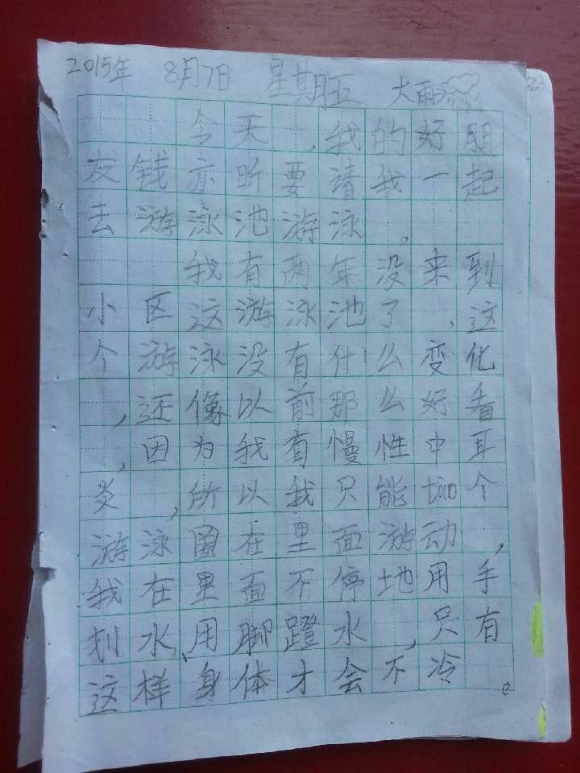 2015年 8月7日 星期五 大雨
今天,我的好朋
友钱亦昕要请我一起
去游泳池游泳。
我有两年没来到
小区这游泳池了,这
个游泳没有什么变化
,还像以前那么好看
,因为我有慢性中耳
炎,所以我只能加个
游泳圈在里面游动,
我在里面不停地用手
划水、用脚蹬水,只有
这样身体才会不冷。